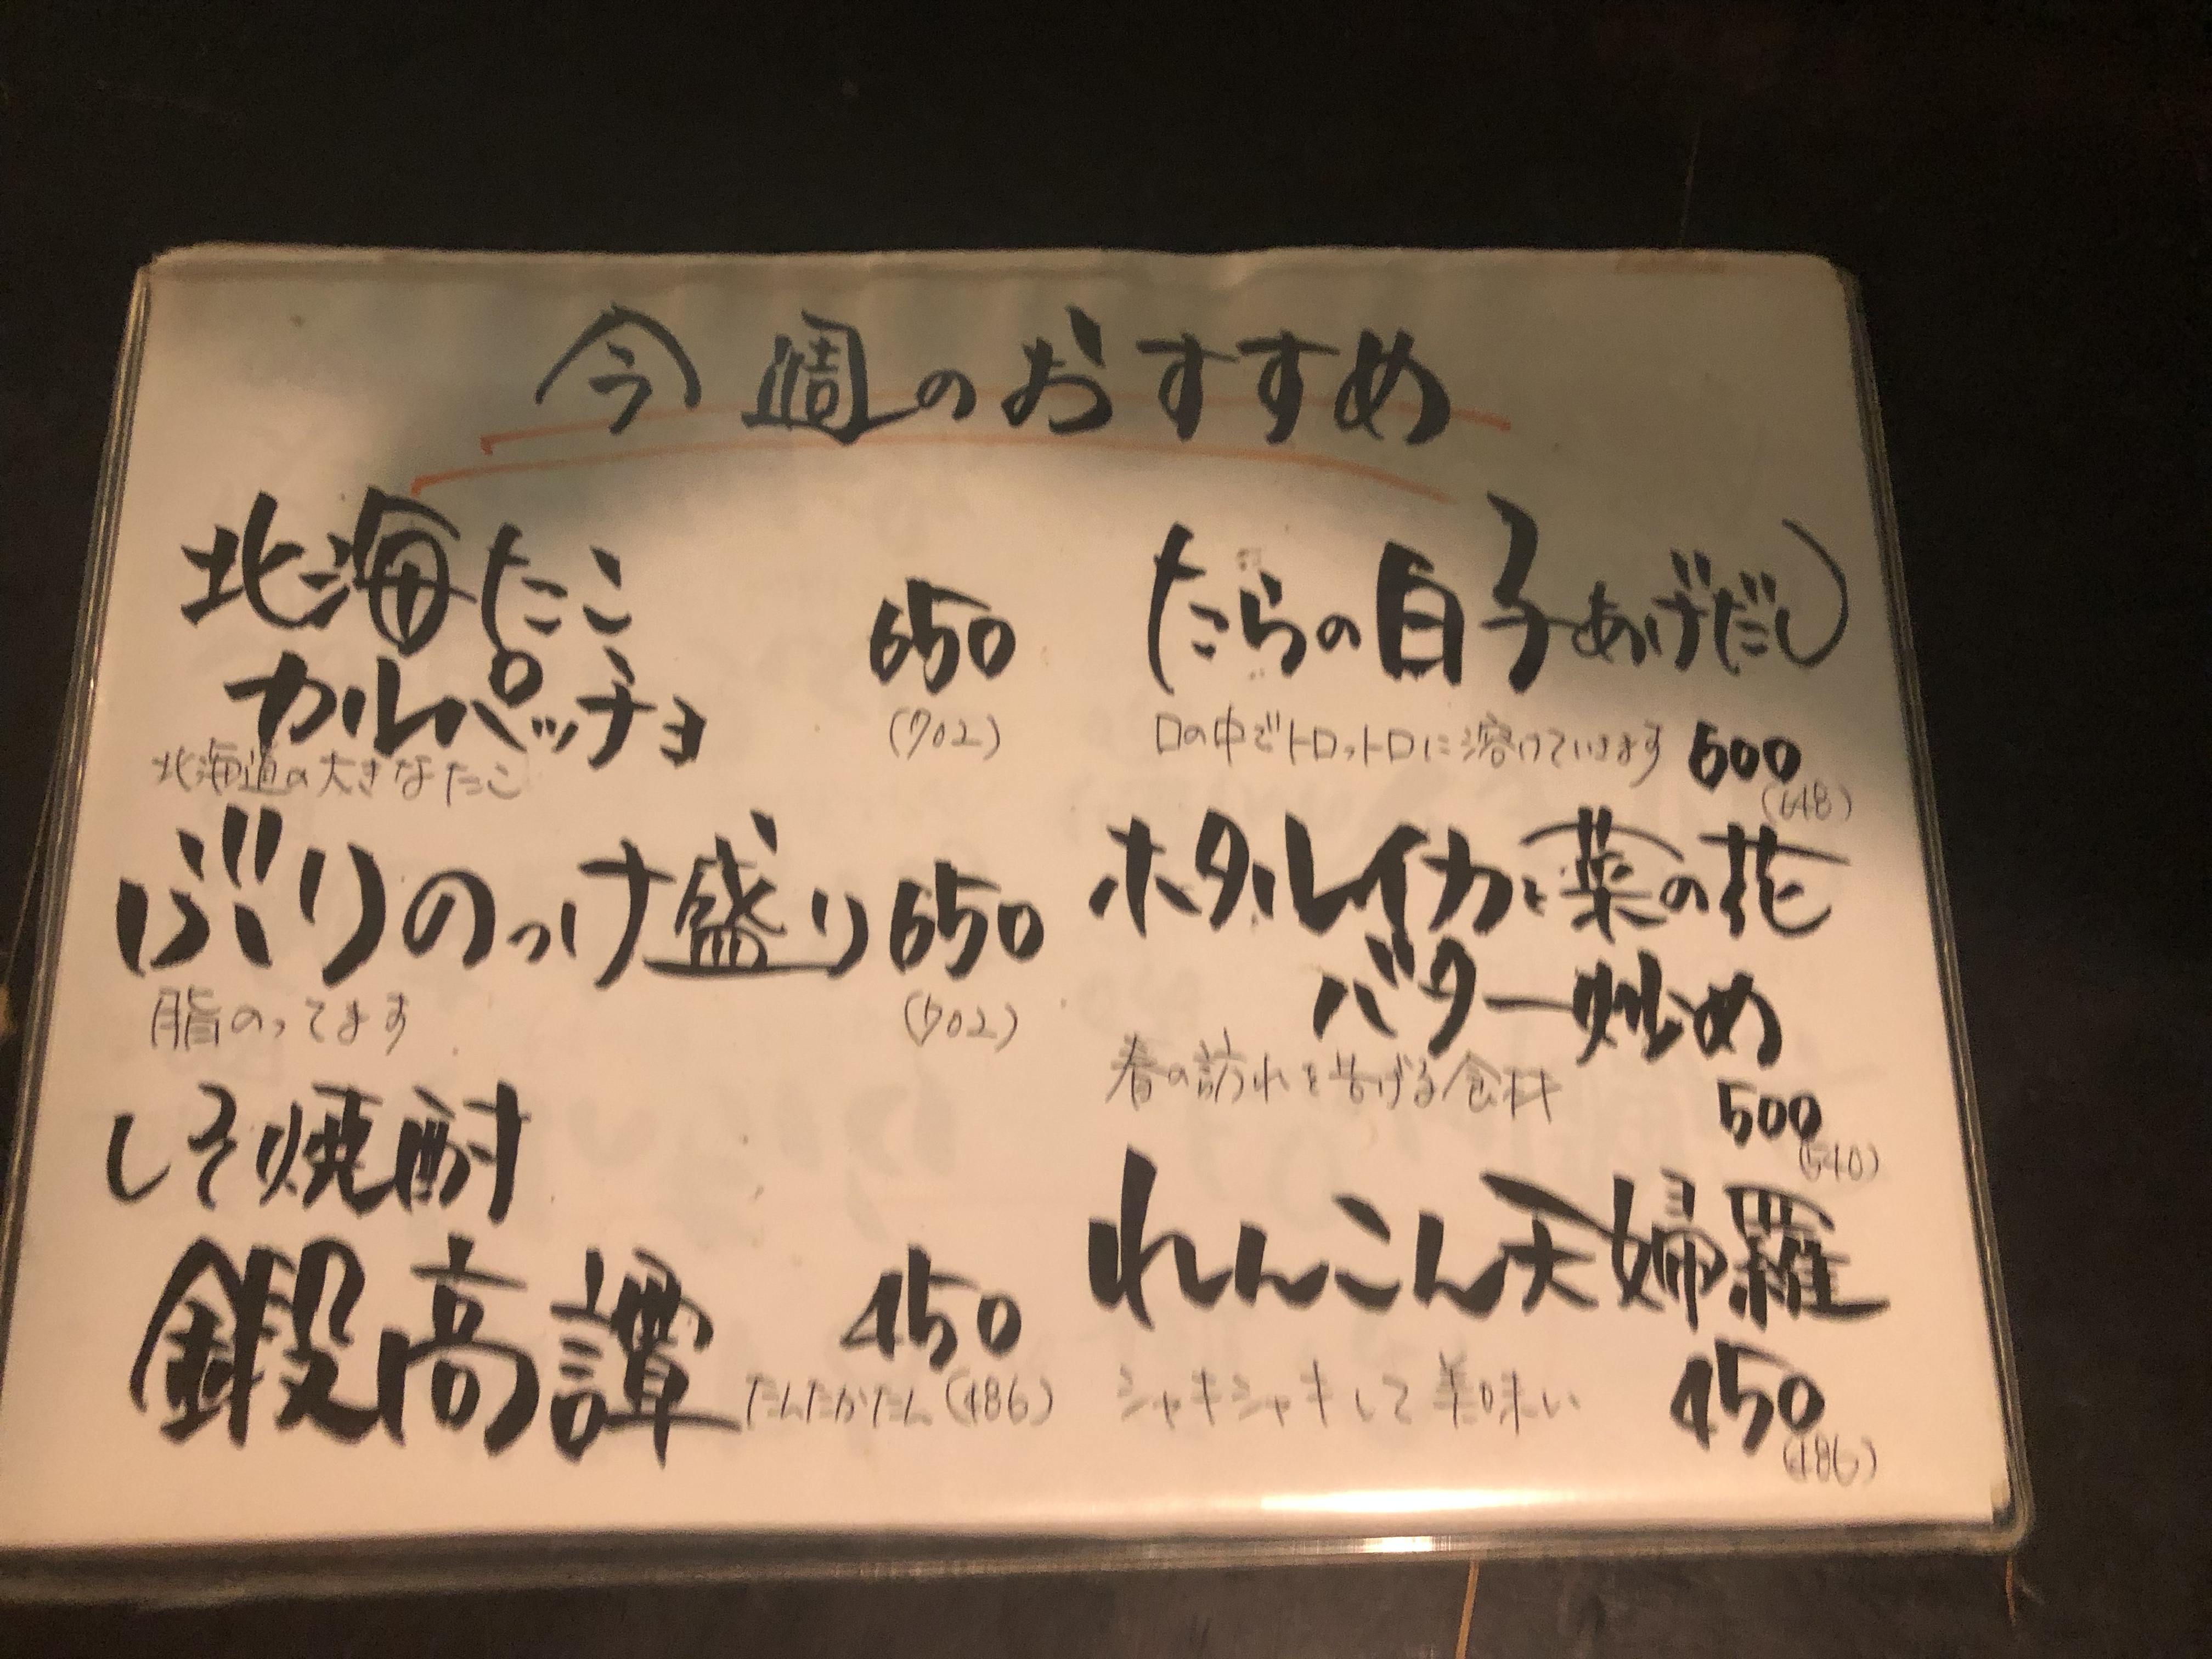 今週のおすすめ
北海たこ
カルパッチョ
650
(702)
北海道の大きなたこ
ぶりのっけ盛り 650
脂のってます
(702)
しそ焼酎
鍛高譚 450
たんたかたん (486)
たらの白子あげだし
口の中でトロットロに溶けています 600
(648)
ホタルイカと菜の花
バター炒め
春の訪れを告げる食材
500
(540)
れんこん天婦羅
シャキシャキして美味い 450
(486)